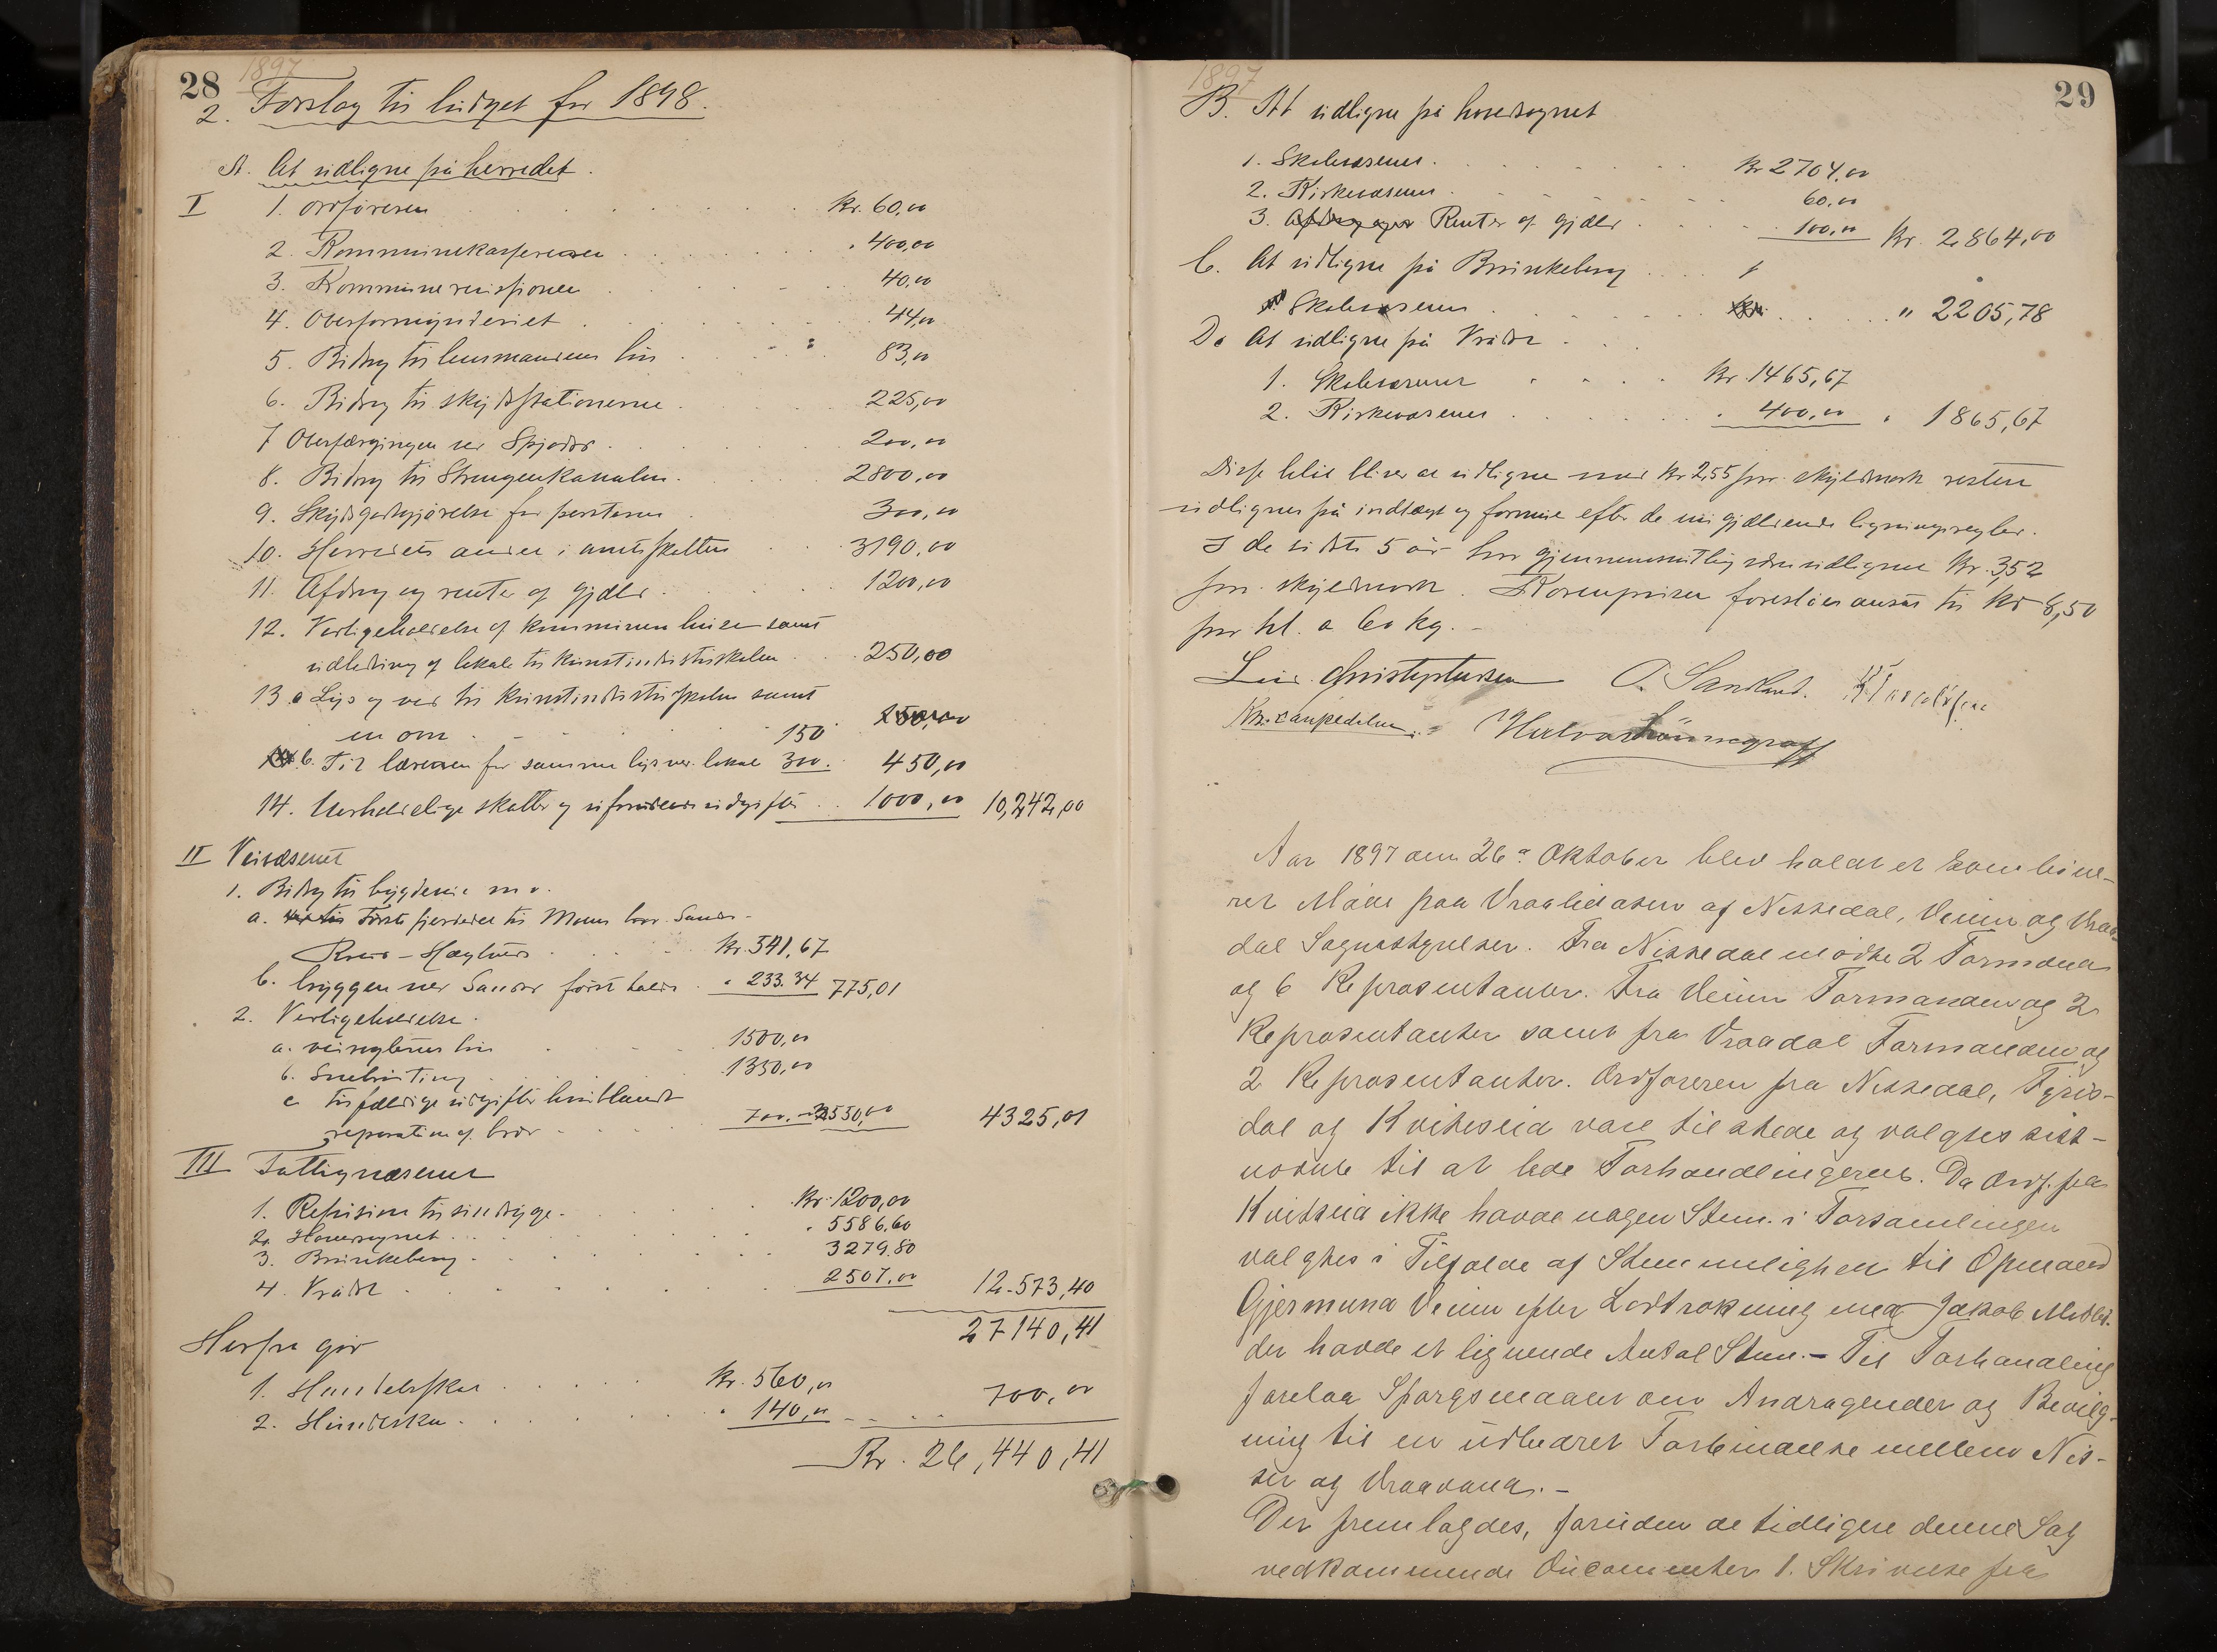 28 1897
2. Forslag til budget for 1898.
A. At udligne på herredet.
I 1. Ordføreren Kr. 60,00
2. Kommunekassereren 400,00
3. Kommunerevisionen 40,00
4. Overformynderiet 44,00
5. Bidrag til lensmandens hus 83,00
6. Bidrag til skydsstationerne 225,00
7 Oversætningen ved Spjodsr 200,00
8. Bidrag til Strengenkanalen 2800,00
9. Skydsgodtgjørelse for presterne 300,00
10. Herredets andel i amtsskatten 3190,00
11. Afdrag og renter af gjæld 1200,00
12. Vedligeholdelse af kommunens huse samt
udleining af lokale til kunstindustriskolen 250,00
13 a Lys og ved til kunstindustriskolen samt
en ovn 150
b. Til læreren for samme lys ved lokale 300. 450,00
14. Uerholdelige skatter og uforudseede udgifter 1000,00 10,242,00
II Veivæsenet
1. Bidrag til bygdevei m v.
a. Første fjerdedel til Moens bro. Sands-
Kr. 541,67
b. bryggen ved første halvd. " 233.34 775,01
2. Vedligeholdelse.
a. veivogternes løn 1500,00
b. Snebrøiting 1350,00
c tilfældige udgifter heriblandt
reparation af broer 700. 3550,00 4325,01
III Fattigvæsenet
1. Refusion til sindsyge Kr. 1200,00
2. Hovedsognet " 5586.60
3. Brunkeberg 3279.80
4. Vrådal 2507,00 12.573,40
27140,41
Herfra går
1. Handelsskat Kr. 560,00
2. Hundeskat " 140,00 700,00
Kr. 26,440,41
1897 29
B. At udligne på hovedsognet
1. Skolevæsenet Kr 2704,00
2. Kirkevæsenet 60,00
3. Renter af gjæld 100,00 Kr. 2864,00
C. At udligne på Brunkeberg
Skolevæsenet " 2205,78
D. At udligne på Vrådal
1. Skolevæsenet Kr. 1465,67
2. Kirkevæsenet " 400,00 " 1865,67
Disse beløb bliver at udligne med Kr 2,55 per skyldmark resten
udlignes på indtægt og formue efter de nu gjældende ligningsregler.
I de sidste 5 år har gjennemsnitlig været udlignet Kr. 3,52
per skyldmark. Kornprisen foreslåes ansat til Kr 8,50
per hl. a 60 kg.
O. Sandland.
Aar 1897 den 26de Oktober blev holdt et kombine-
ret Møde paa Vraaliosen af Nissedal, Veum og Vraa-
dal Sognestyrelser. Fra Nissedal mødte 2 Formænd
og 6 Repræsentanter. Fra Veum Formanden og 2
Repræsentanter samt fra Vraadal Formanden og
2 Repræsentanter. Ordføreren fra Nissedal, Fyris-
dal og Kviteseid vare tilstede og valgtes sidst-
nævnte til at lede Forhandlingerne. Da Ordf. fra
Kviteseid ikke havde nogen Stem. i Forsamlingen
valgtes i Tilfælde af Stemmelighed til Opmand
Gjermund Veum efter Lodtrækning med Jakob
der havde et lignende Antal Stem. – Til Forhandling
forelaa Spørgsmaalet om Andragender og Bevilg-
ning til en udbedret Forbindelse mellem Nis-
ser og Vraavand. –
Der fremlagdes, foruden de tidligere denne Sag
vedkommende Documenter 1. Skrivelse fra